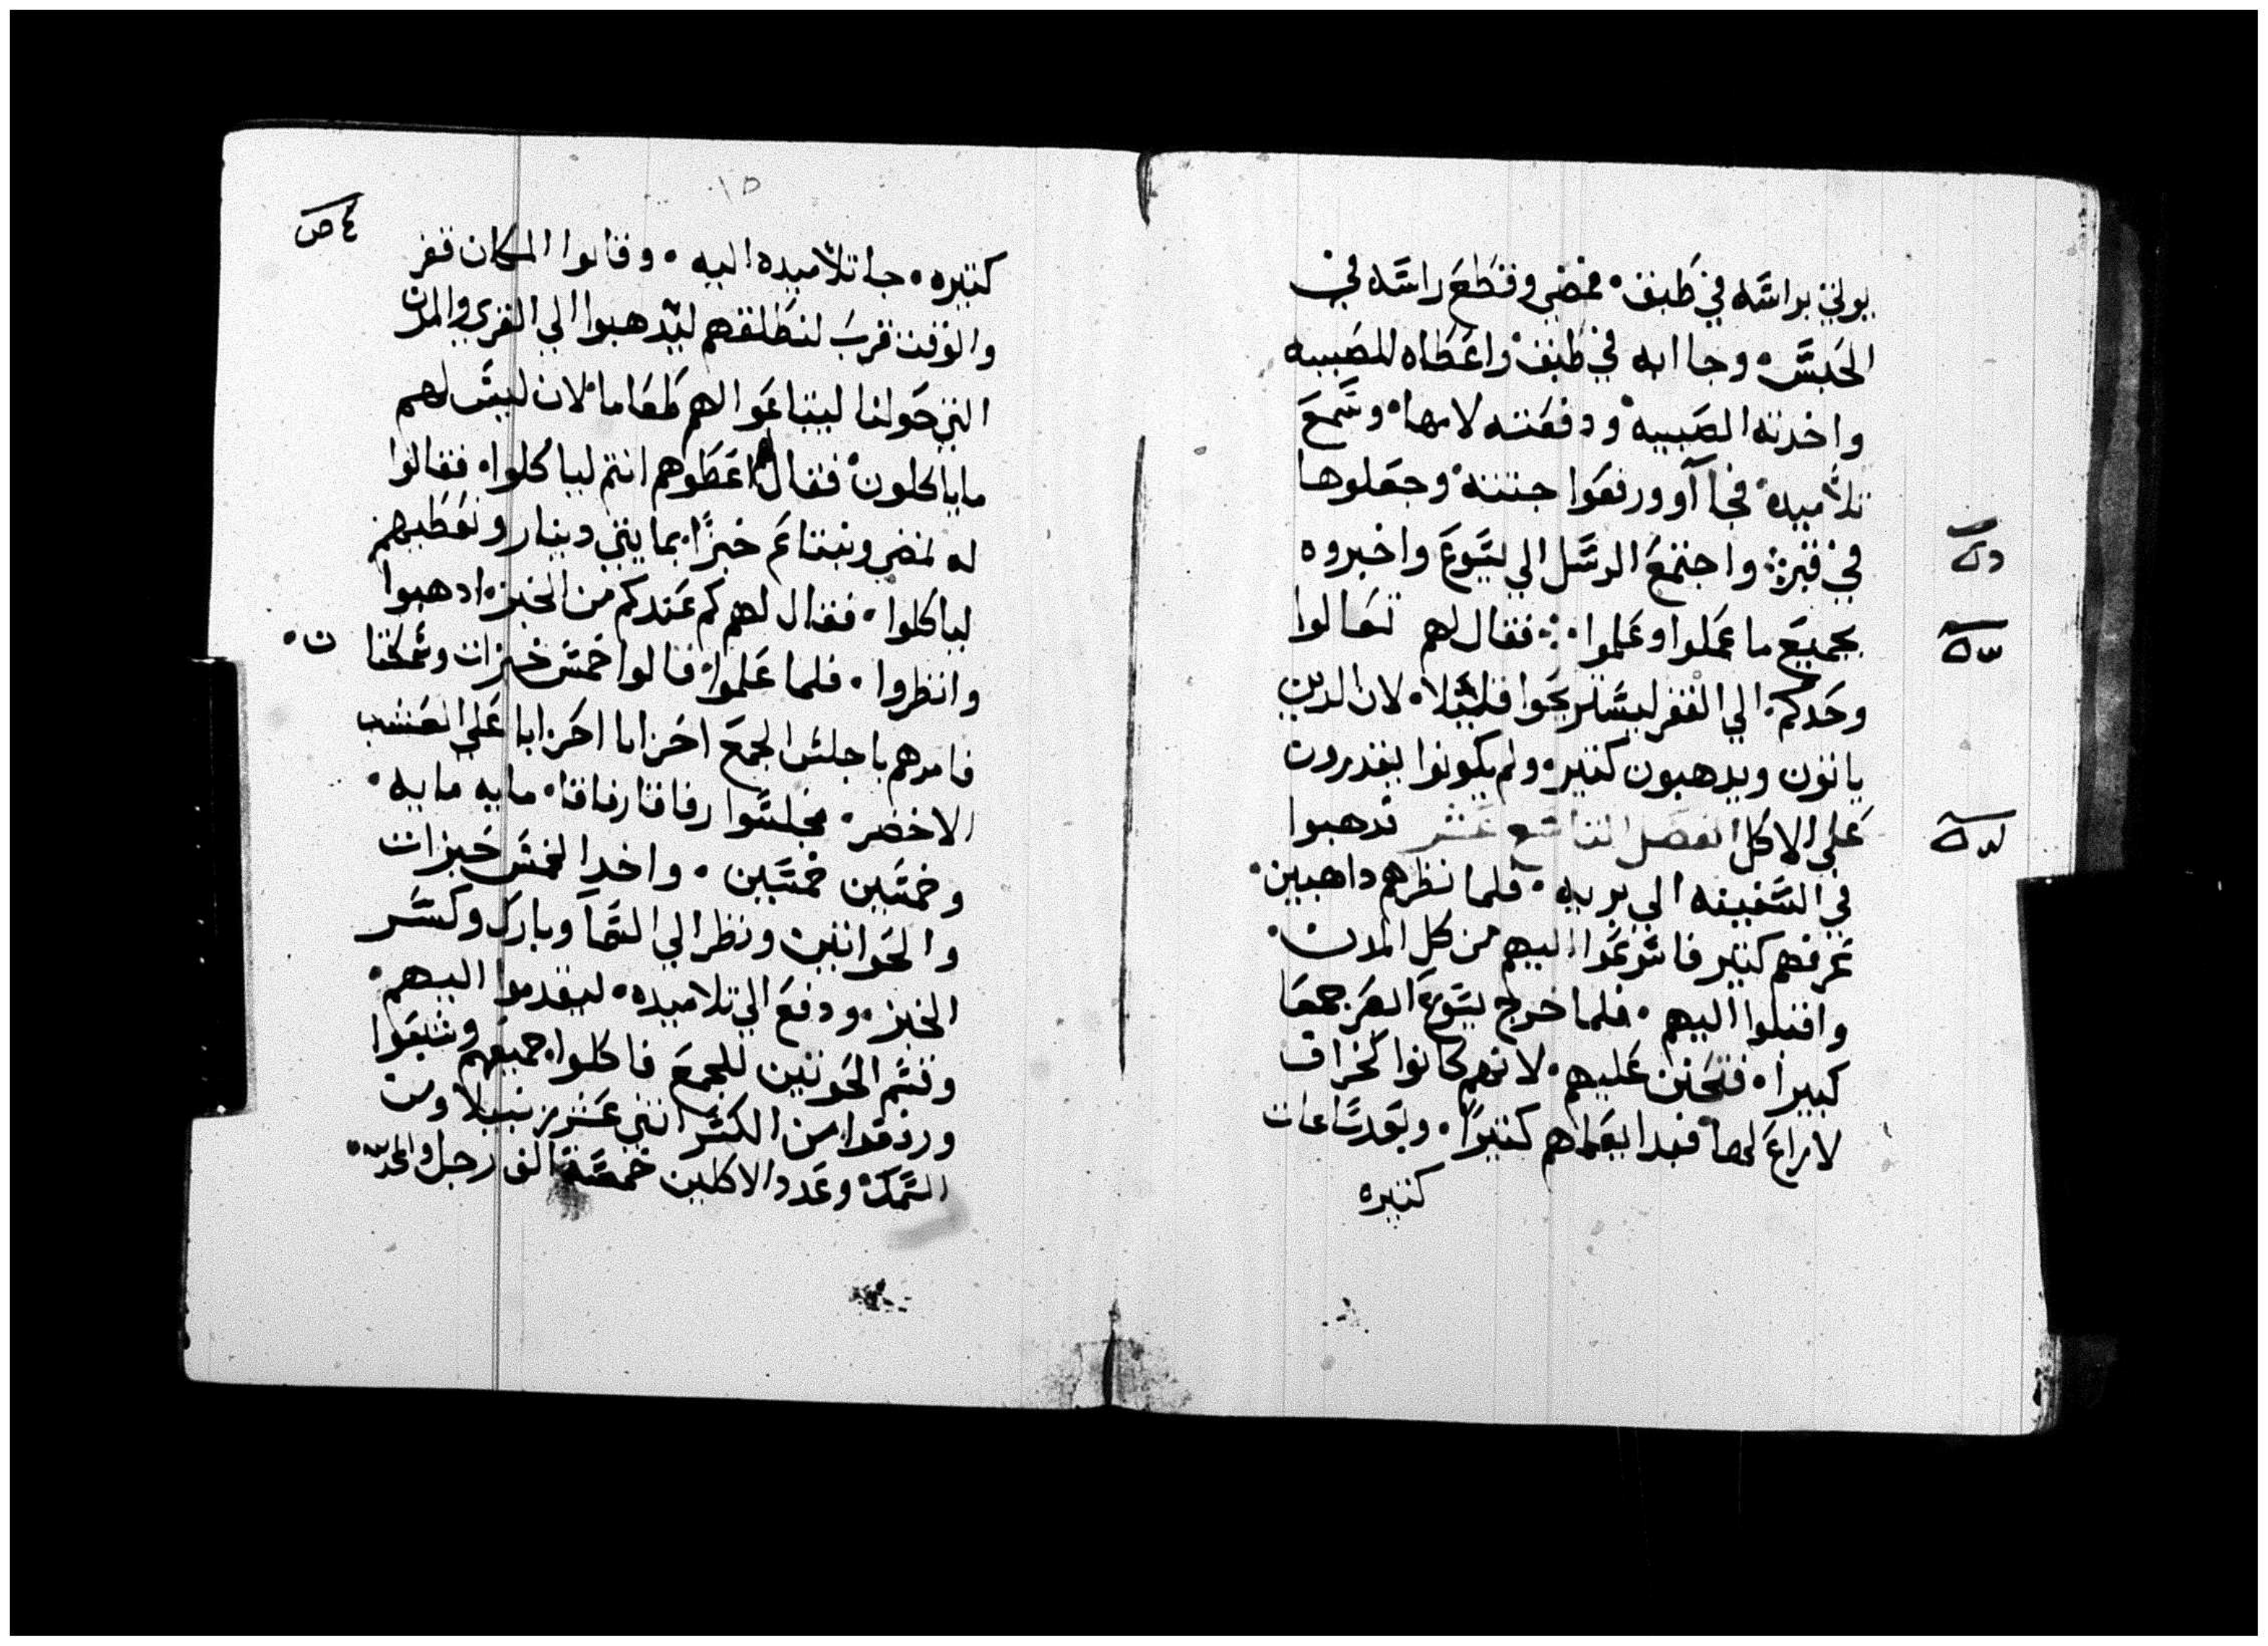 يولي براسه في طبق. فمضي وقطع راسه في
الحبس. وجا به في طبق واعطاه للصبيه
واخدته الصبيه ودفعته لامها. وسمع
تلاميده. فجاآو ورفعوا جتته وجعلوها
في قبر. واجتمع الرسل الي ليسوع واخبروه
بجميع ما عملوا وعلموا. فقال لهم تعالوا
وحدكم. الي القفر ليستريحوا قليلا. لان الدين
ياتون ويدهبون كتير. ولم يكونوا يقدرون
علي الاكل الفصل التاسع عشر تدهبوا
في السفينه الي بريه. فلما نظرهم داهبين.
عرفهم كتير فاسرعوا اليهم من كل المدن.
واقبلوا اليهم. فلما خرج ليسوع ابصر جمعا
كبيرا. فتحنن عليهم. لانهم كانوا كخراف
لا راع لها. فبدا يعلمهم كتيرا. وبعد ساعات
كتيره
كتيره. جا تلاميده اليه. وقالوا المكان قفر
والوقت قرب لنطلقهم ليدهبوا الي القري والمدن
التي حولنا ليبتاعوا لهم طعاما. لان ليس لهم
ما ياكلون. فقال اعطوهم انتم لياكلوا. فقالوا
له نمضي ونبتاع خبزا. بمايتي دينار ونعطيهم
لياكلوا. فقال لهم كم عندكم من الخبز. ادهبوا
وانظروا. فلما علموا. قالوا خمس خبزات وسمكتا
ن.
فامرهم باجلس الجمع احزابا احزابا علي العشب
الاخضر. فجلسوا رفاقا رفاقا. مايه مايه.
وخمسين خمسين. واخد الخمس خبزات
والحوانين ونظر الي السما وبارك وكسر
الخبز. ودفع الي تلاميده. ليقدموا اليهم.
وقسم الحوتين للجمع فاكلوا. جميعهم وشبعوا
ورفعوا من الكسر اتني عشر زنبيلا ومن
السمك. وعدد الاكلين خمسة الف رجل